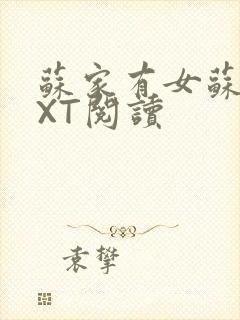 蘇家有女蘇
XT閱讀
袁攀